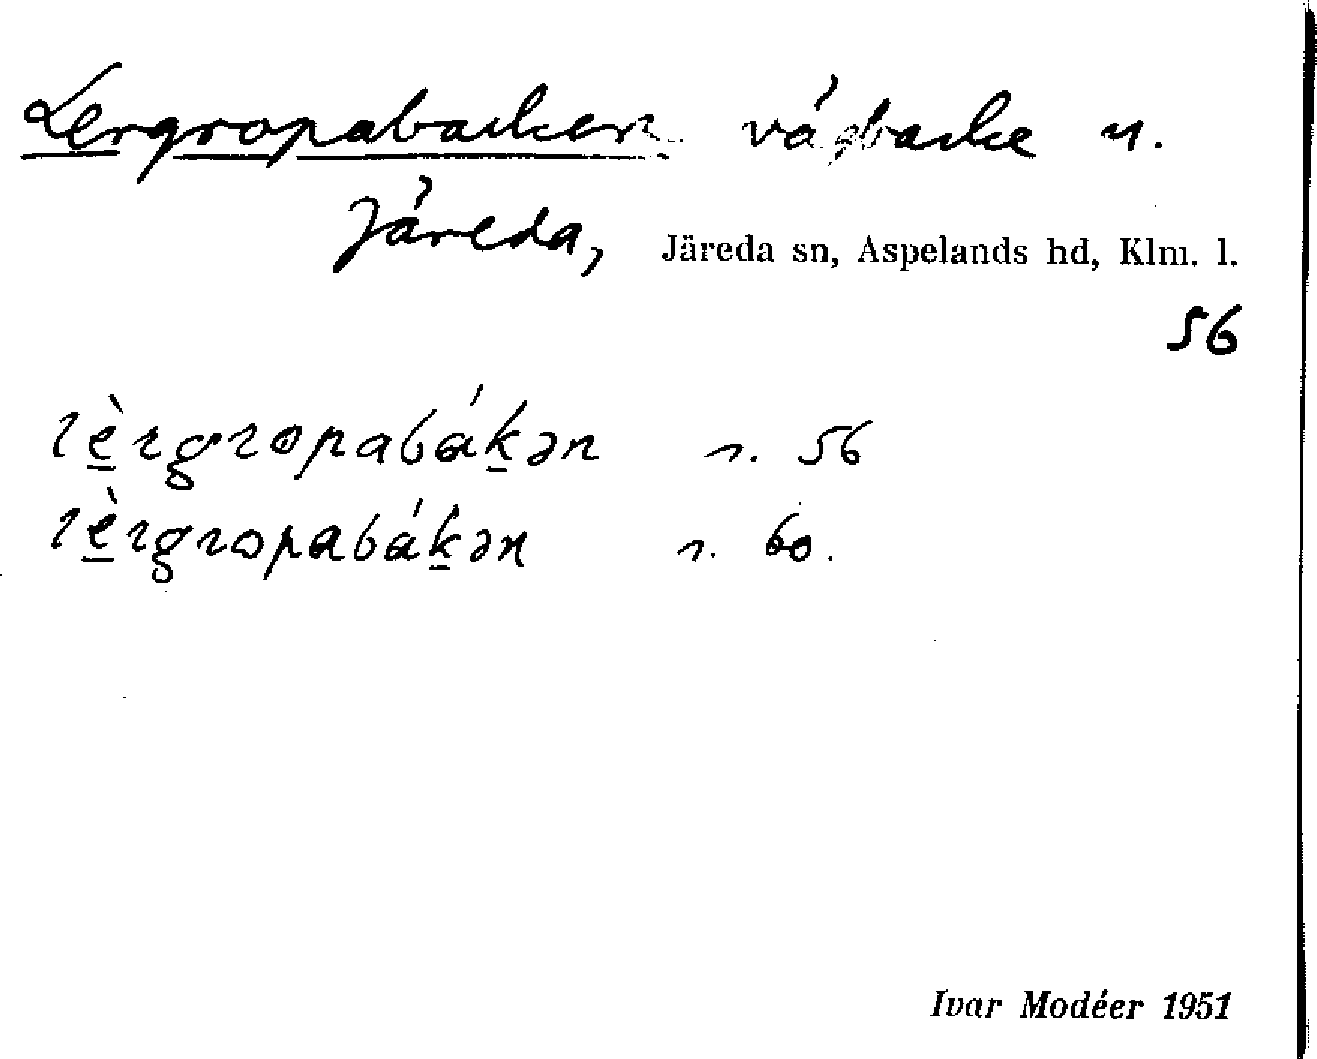 Lergropabacken vägbacke n.
Järeda, Järeda sn, Aspelands hd, Klm. l.
56
lè̱rgropabáḵən r. 56
lè̱rgropabáḵən r. 60.
Ivar Modéer 1951